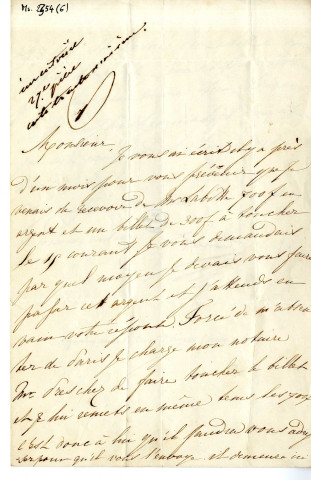 Ms. 2354 (6)
inventoriée
27e pièce
cote trente
Monsieur,
Je vous ai écrit il y a près
d'un mois pour vous prévenir que je
venais de recevoir de Mr Labotte 700f en
argent et un billet de 200f à toucher
le 15 courant je vous demandais
par quel moyen je devais vous faire
passer cet argent et j'attends en
vain votre réponse. Forcé de m'absen
ter de Paris je charge mon notaire
Mr Preschez de faire toucher le billet
et je lui remets en même tems les 700f
c'est donc à lui qu'il faudra vous adres
ser pour qu'il vous l'envoye et demeure ici